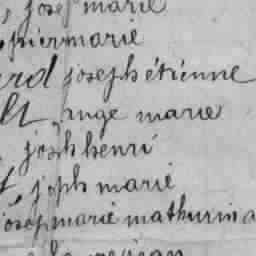 , josep marie
piermarie
rd joseph étienne
lt, ange marie
, josph henri
t, jsph marie
josep marie mathurin a